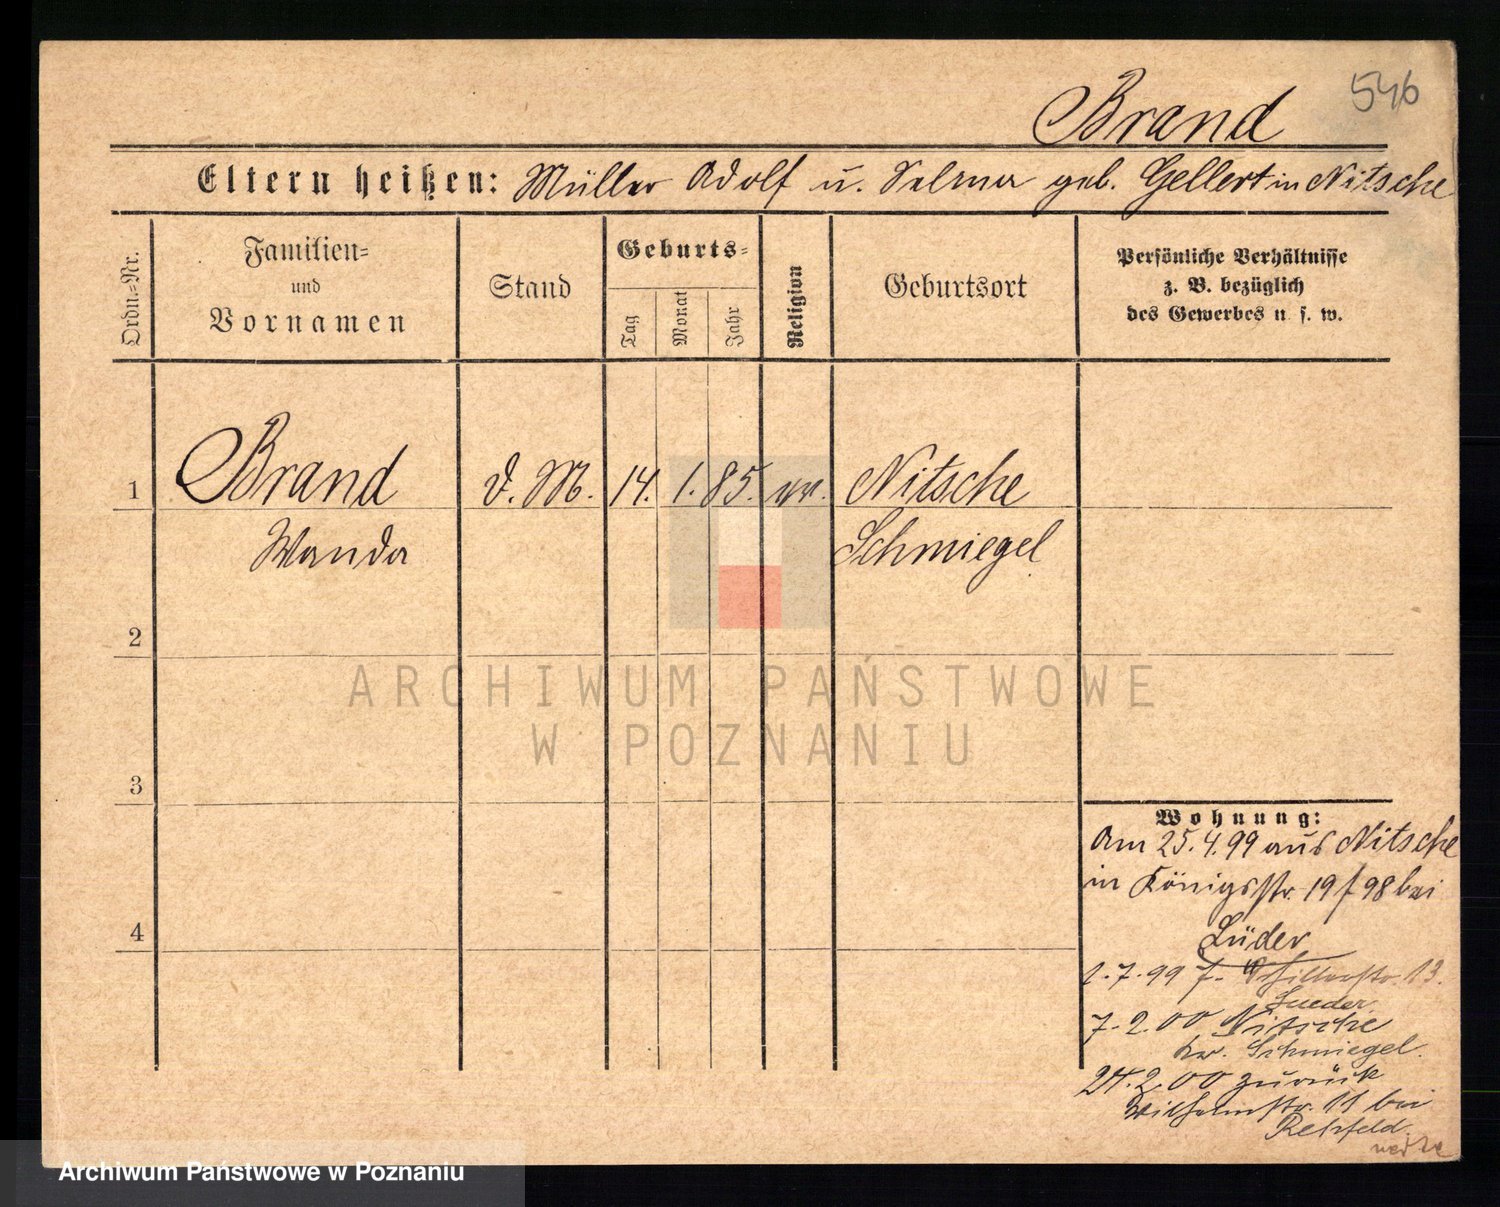 546
Brand
Eltern heißen: Müller Adolf u. Selma geb. Gellert in Nitsche
Ordn.-Nr.
Familien-
und
Vornamen
Stand
Geburts-
Tag
Monat
Jahr
Religion
Geburtsort
Persönliche Verhältnisse
z. B. bezüglich
des Gewerbes u. s. w.
1 Brand d. M. 14. 1. 85. ev. Nitsche
Wanda Schmiegel
2
3
4
ARCHIWUM PAŃSTWOWE
W POZNANIU
Wohnung:
Am 25.4.99 aus Nitsche
in Königsstr. 19 f 98 bei
Lüder
1.7.99 f. Schillerstr. 13.
Lueder
7.2.00 Nitsche
Kr. Schmiegel.
24.2.00 zurück
Wilhelmstr. 11 bei
Rehfeld.
Archiwum Państwowe w Poznaniu